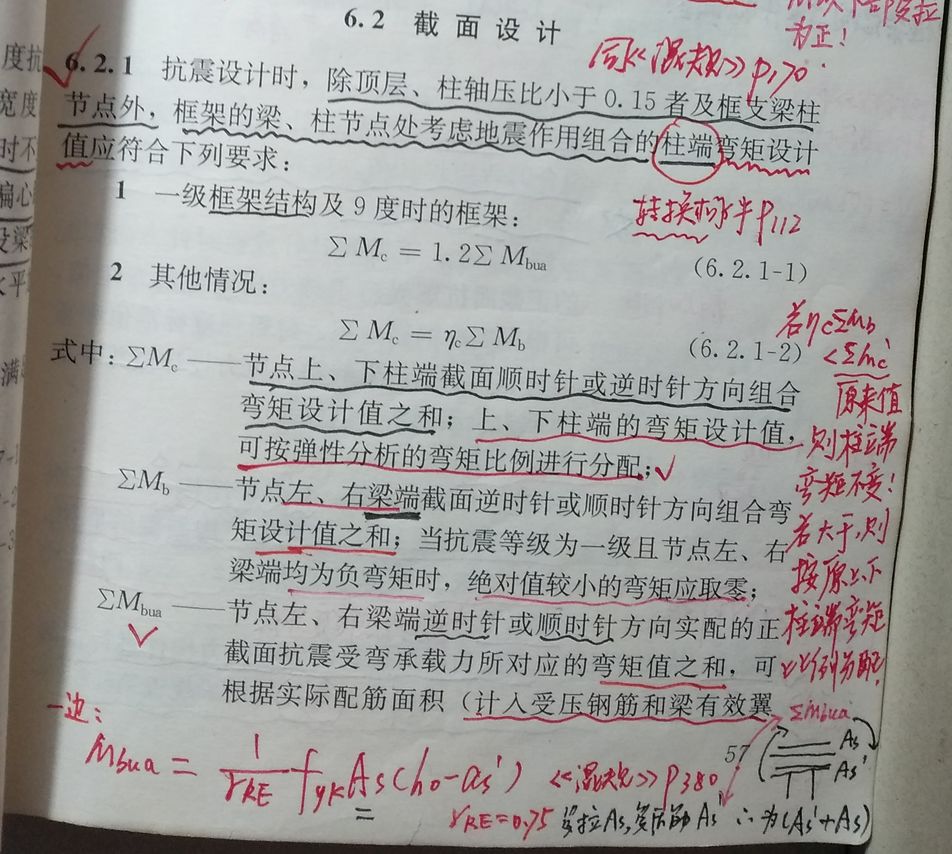 6.2 截面设计
为正!
同《混规》P170.
6.2.1 抗震设计时,除顶层、柱轴压比小于0.15者及框支梁柱
节点外,框架的梁、柱节点处考虑地震作用组合的柱端弯矩设计
值应符合下列要求:
1 一级框架结构及9度时的框架:
转换柱水平P112
∑Mc = 1.2∑Mbua (6.2.1-1)
2 其他情况:
∑Mc = ηc∑Mb (6.2.1-2)
若ηc∑Mb
<∑mc'
原来值
则柱端
弯矩不变!
若大于,则
按原上、下
柱端弯矩
比例分配.
式中:∑Mc——节点上、下柱端截面顺时针或逆时针方向组合
弯矩设计值之和;上、下柱端的弯矩设计值,
可按弹性分析的弯矩比例进行分配;
∑Mb——节点左、右梁端截面逆时针或顺时针方向组合弯
矩设计值之和;当抗震等级为一级且节点左、右
梁端均为负弯矩时,绝对值较小的弯矩应取零;
∑Mbua——节点左、右梁端逆时针或顺时针方向实配的正
截面抗震受弯承载力所对应的弯矩值之和,可
根据实际配筋面积(计入受压钢筋和梁有效翼
57
∑Mbua
As
As'
一边:
Mbua = 1/γRE fyk As(h0-as') 《混规》P380
γRE=0.75 As, As' ∴为(As'+As)
度抗
宽度
时不
偏心
设梁
水平
满